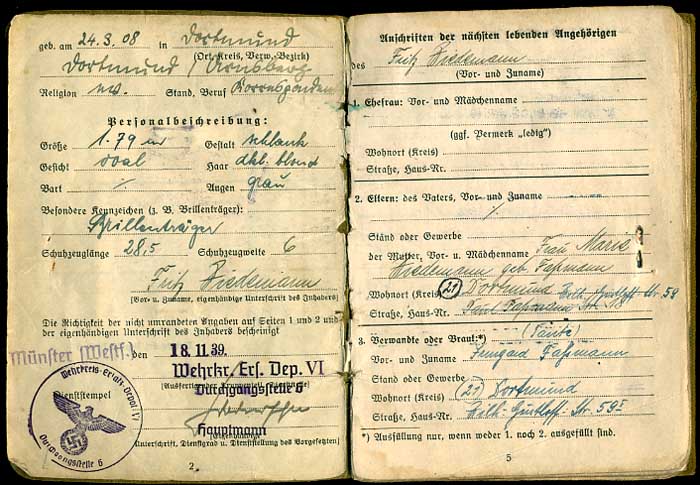 geb. am 24.3.08 in Dortmund
(Ort, Kreis, Verw.-Bezirk)
Dortmund / Arnsberg
Religion ev. Stand, Beruf
Personalbeschreibung:
Größe 1.79 m Gestalt schlank
Gesicht oval Haar dkl. blond
Bart / Augen grau
Besondere Kennzeichen (z. B. Brillenträger):
Brillenträger
Schuhzeuglänge 28,5 Schuhzeugweite 6
Fritz Wiedemann
(Vor- u. Zuname, eigenhändige Unterschrift des Inhabers)
Die Richtigkeit der nicht umrandeten Angaben auf Seiten 1 und 2 und
der eigenhändigen Unterschrift des Inhabers bescheinigt
Münster (Westf.) den 18.11.39.
Wehrkr./Ers. Dep. VI
Durchgangsstelle 6
Dienststempel
Hauptmann
(Unterschrift, Dienstgrad u. Dienststellung des Vorgesetzten)
2
Anschriften der nächsten lebenden Angehörigen
des Fritz Wiedemann
(Vor- und Zuname)
1. Ehefrau: Vor- und Mädchenname
(ggf. Vermerk „ledig")
Wohnort (Kreis)
Straße, Haus-Nr.
2. Eltern: des Vaters, Vor- und Zuname
/
Stand oder Gewerbe
der Mutter, Vor- u. Mädchenname Frau Maria
Wiedemann geb. Faßmann
Wohnort (Kreis) (21) Dortmund Wilh. Gustloff-Str. 59
Straße, Haus-Nr.
3. Verwandte oder Braut:*) (Tante)
Vor- und Zuname Irmgard Faßmann
Stand oder Gewerbe
Wohnort (Kreis) (21) Dortmund
Straße, Haus-Nr. Wilh. Gustloff-Str. 59 I
*) Ausfüllung nur, wenn weder 1. noch 2. ausgefüllt sind.
5